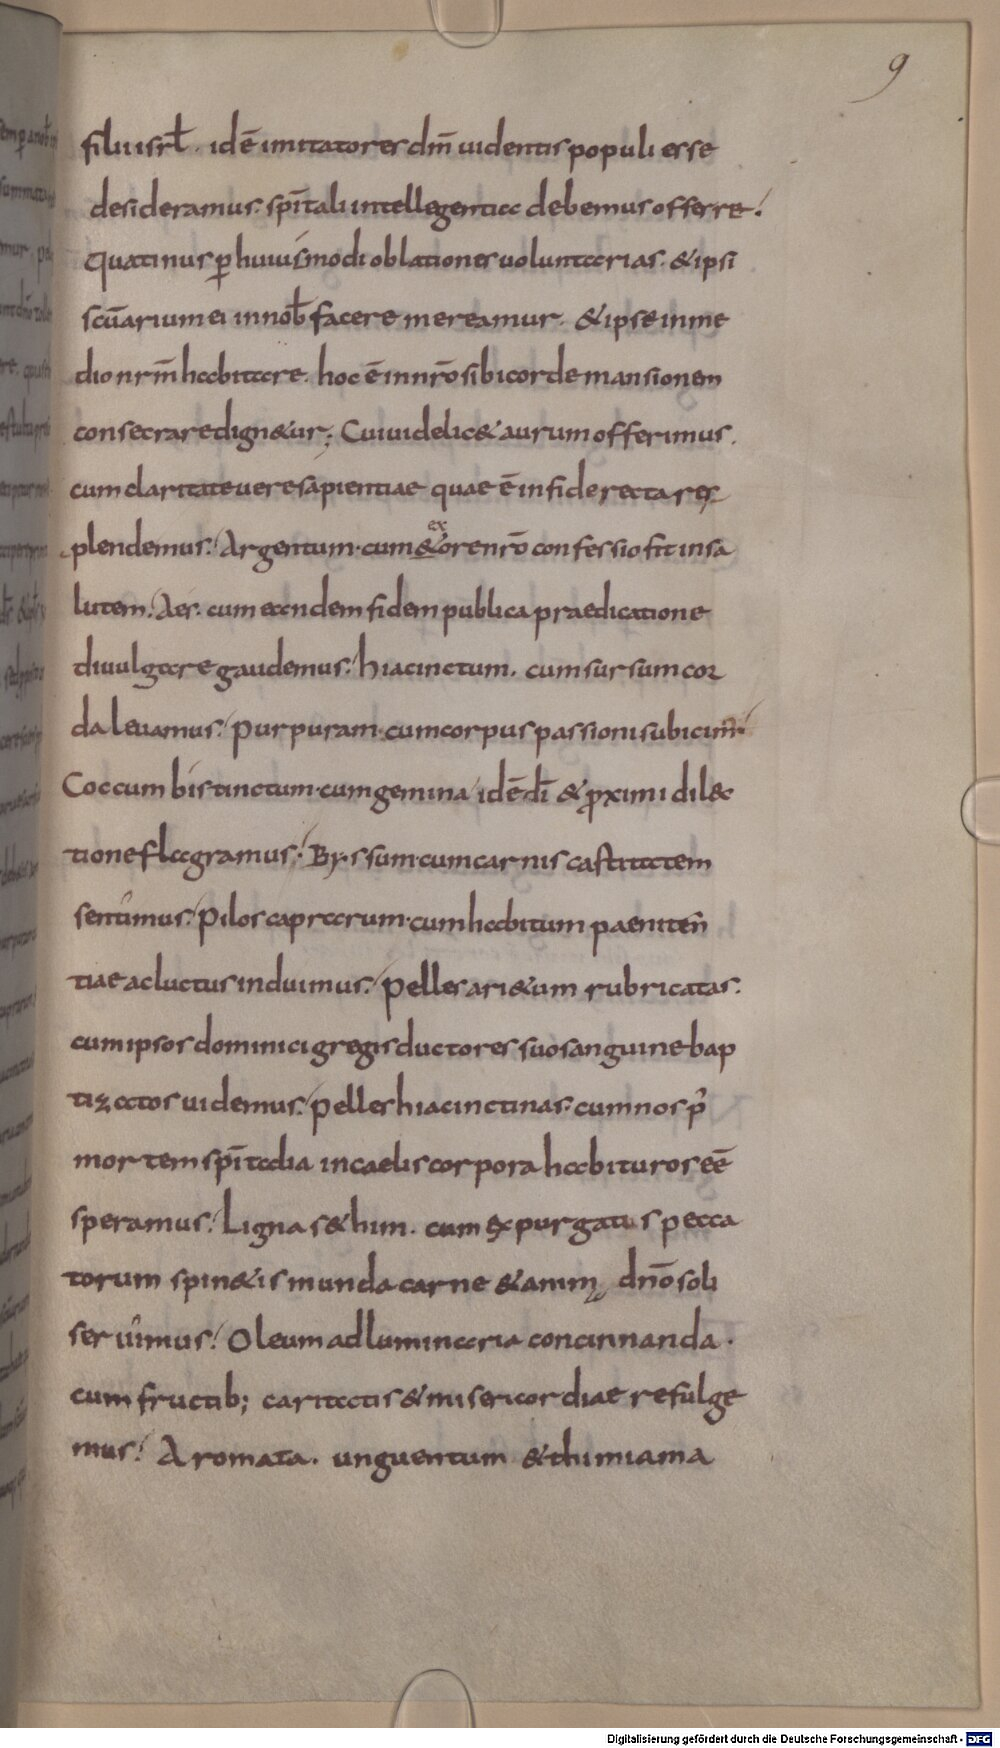 9
filii isrł. idē imitatores dm̄ uidentis populi esse
desideramus. spi̅tali intellegentia debemus offerre.
Quatinus ꝑ huiusmodi oblationes uoluntarias. & ipsi
scūarium ei in nob̄ facere mereamur. & ipse in me
dio nrm̄ habitare. hoc ē in nrō sibi corde mansionem
consecrare dign&ur; Cui uidelic& aurum offerimus.
cum claritate uere sapientiae quae ē in fide recta res
plendemus. Argentum. cum ex & ore nrō confessio fit in sa
lutem. Aes. cum eandem fidem publica praedicatione
diuulgare gaudemus. hiacinctum. cum sursum cor
da leuamus. purpuram. cum corpus passioni subicim̄.
Coccum bis tinctum. cum gemina idē dī & ꝓximi dilec
tione flagramus. Byssum. cum carnis castitatem
sentimus. Pilos caprarum. cum habitum paeniten
tiae ac luctus induimus. pelles ari&um rubricatas.
cum ipsos dominici gregis ductores suo sanguine bap
tizatos uidemus. pelles hiacinctinas. cum nos p᷒
mortem spi̅talia in caelis corpora habituros eē
speramus. Ligna s&him. cum expurgatis pecca
torum spin&is munda carne & anima dnō soli
seruimus. Oleum ad luminaria concinnanda.
cum fructib; caritatis & misericordiae refulge
mus. Aromata. unguentum & thimiama
Digitalisierung gefördert durch die Deutsche Forschungsgemeinschaft - DFG